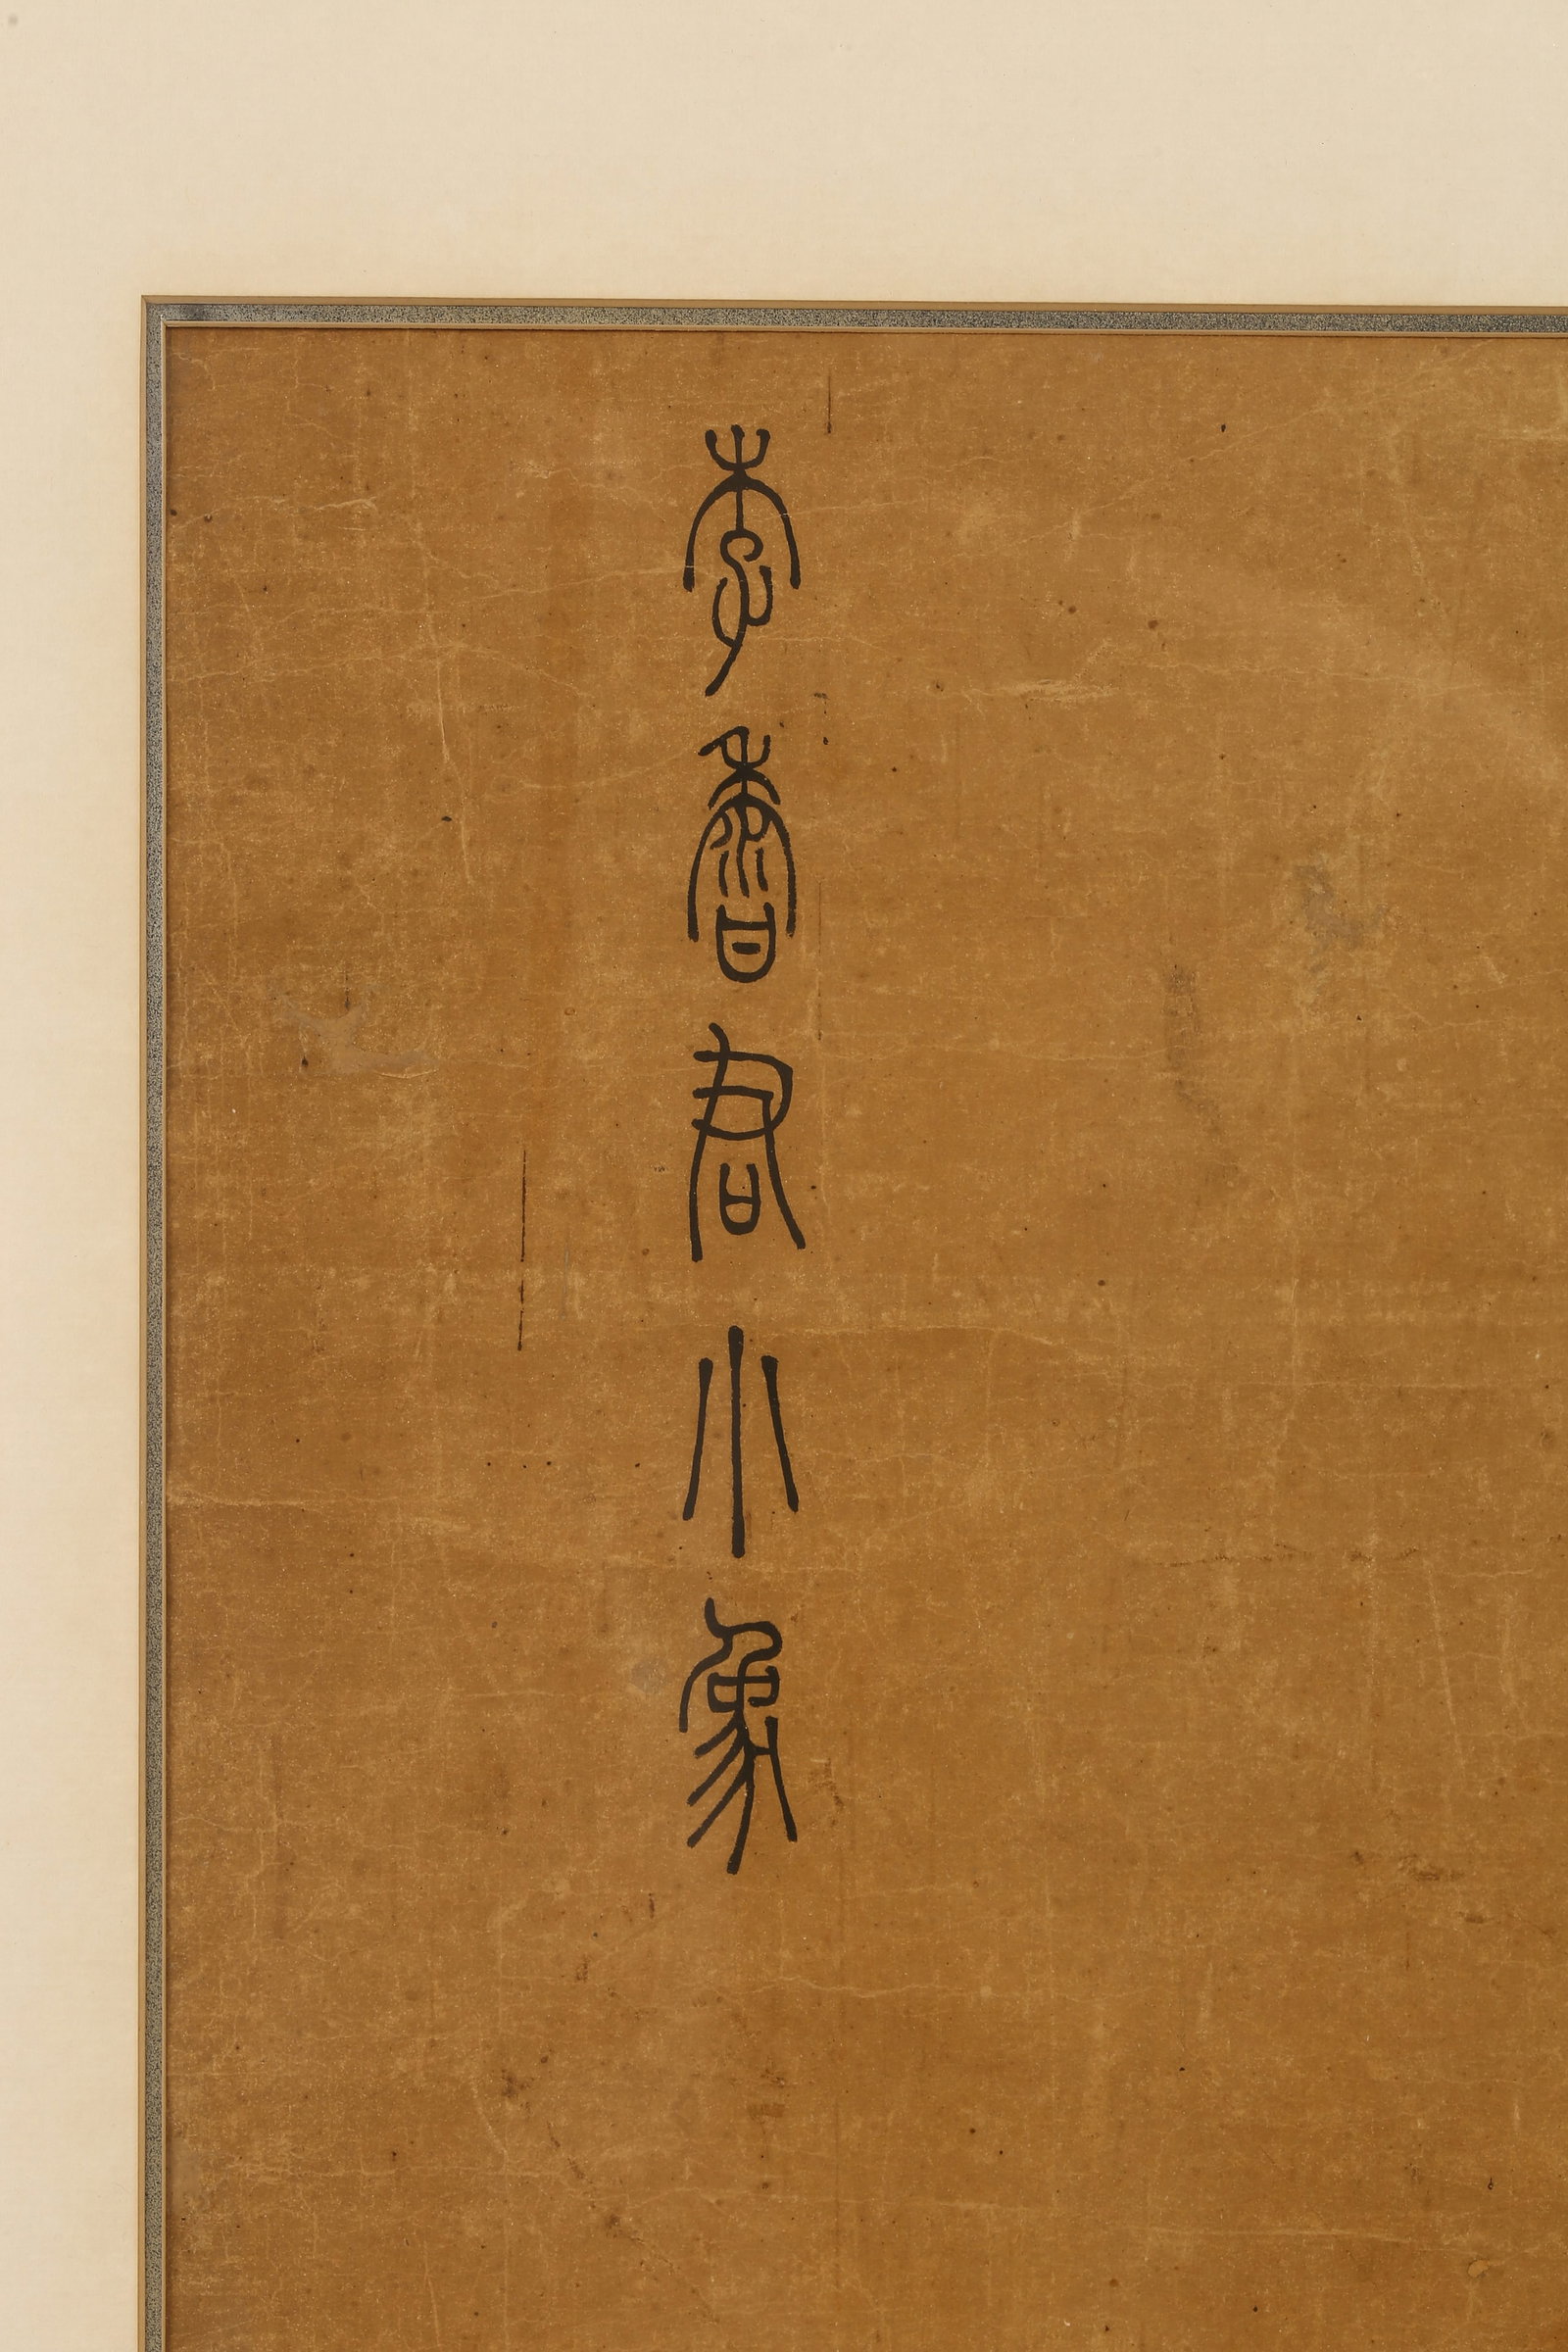 李香君小象